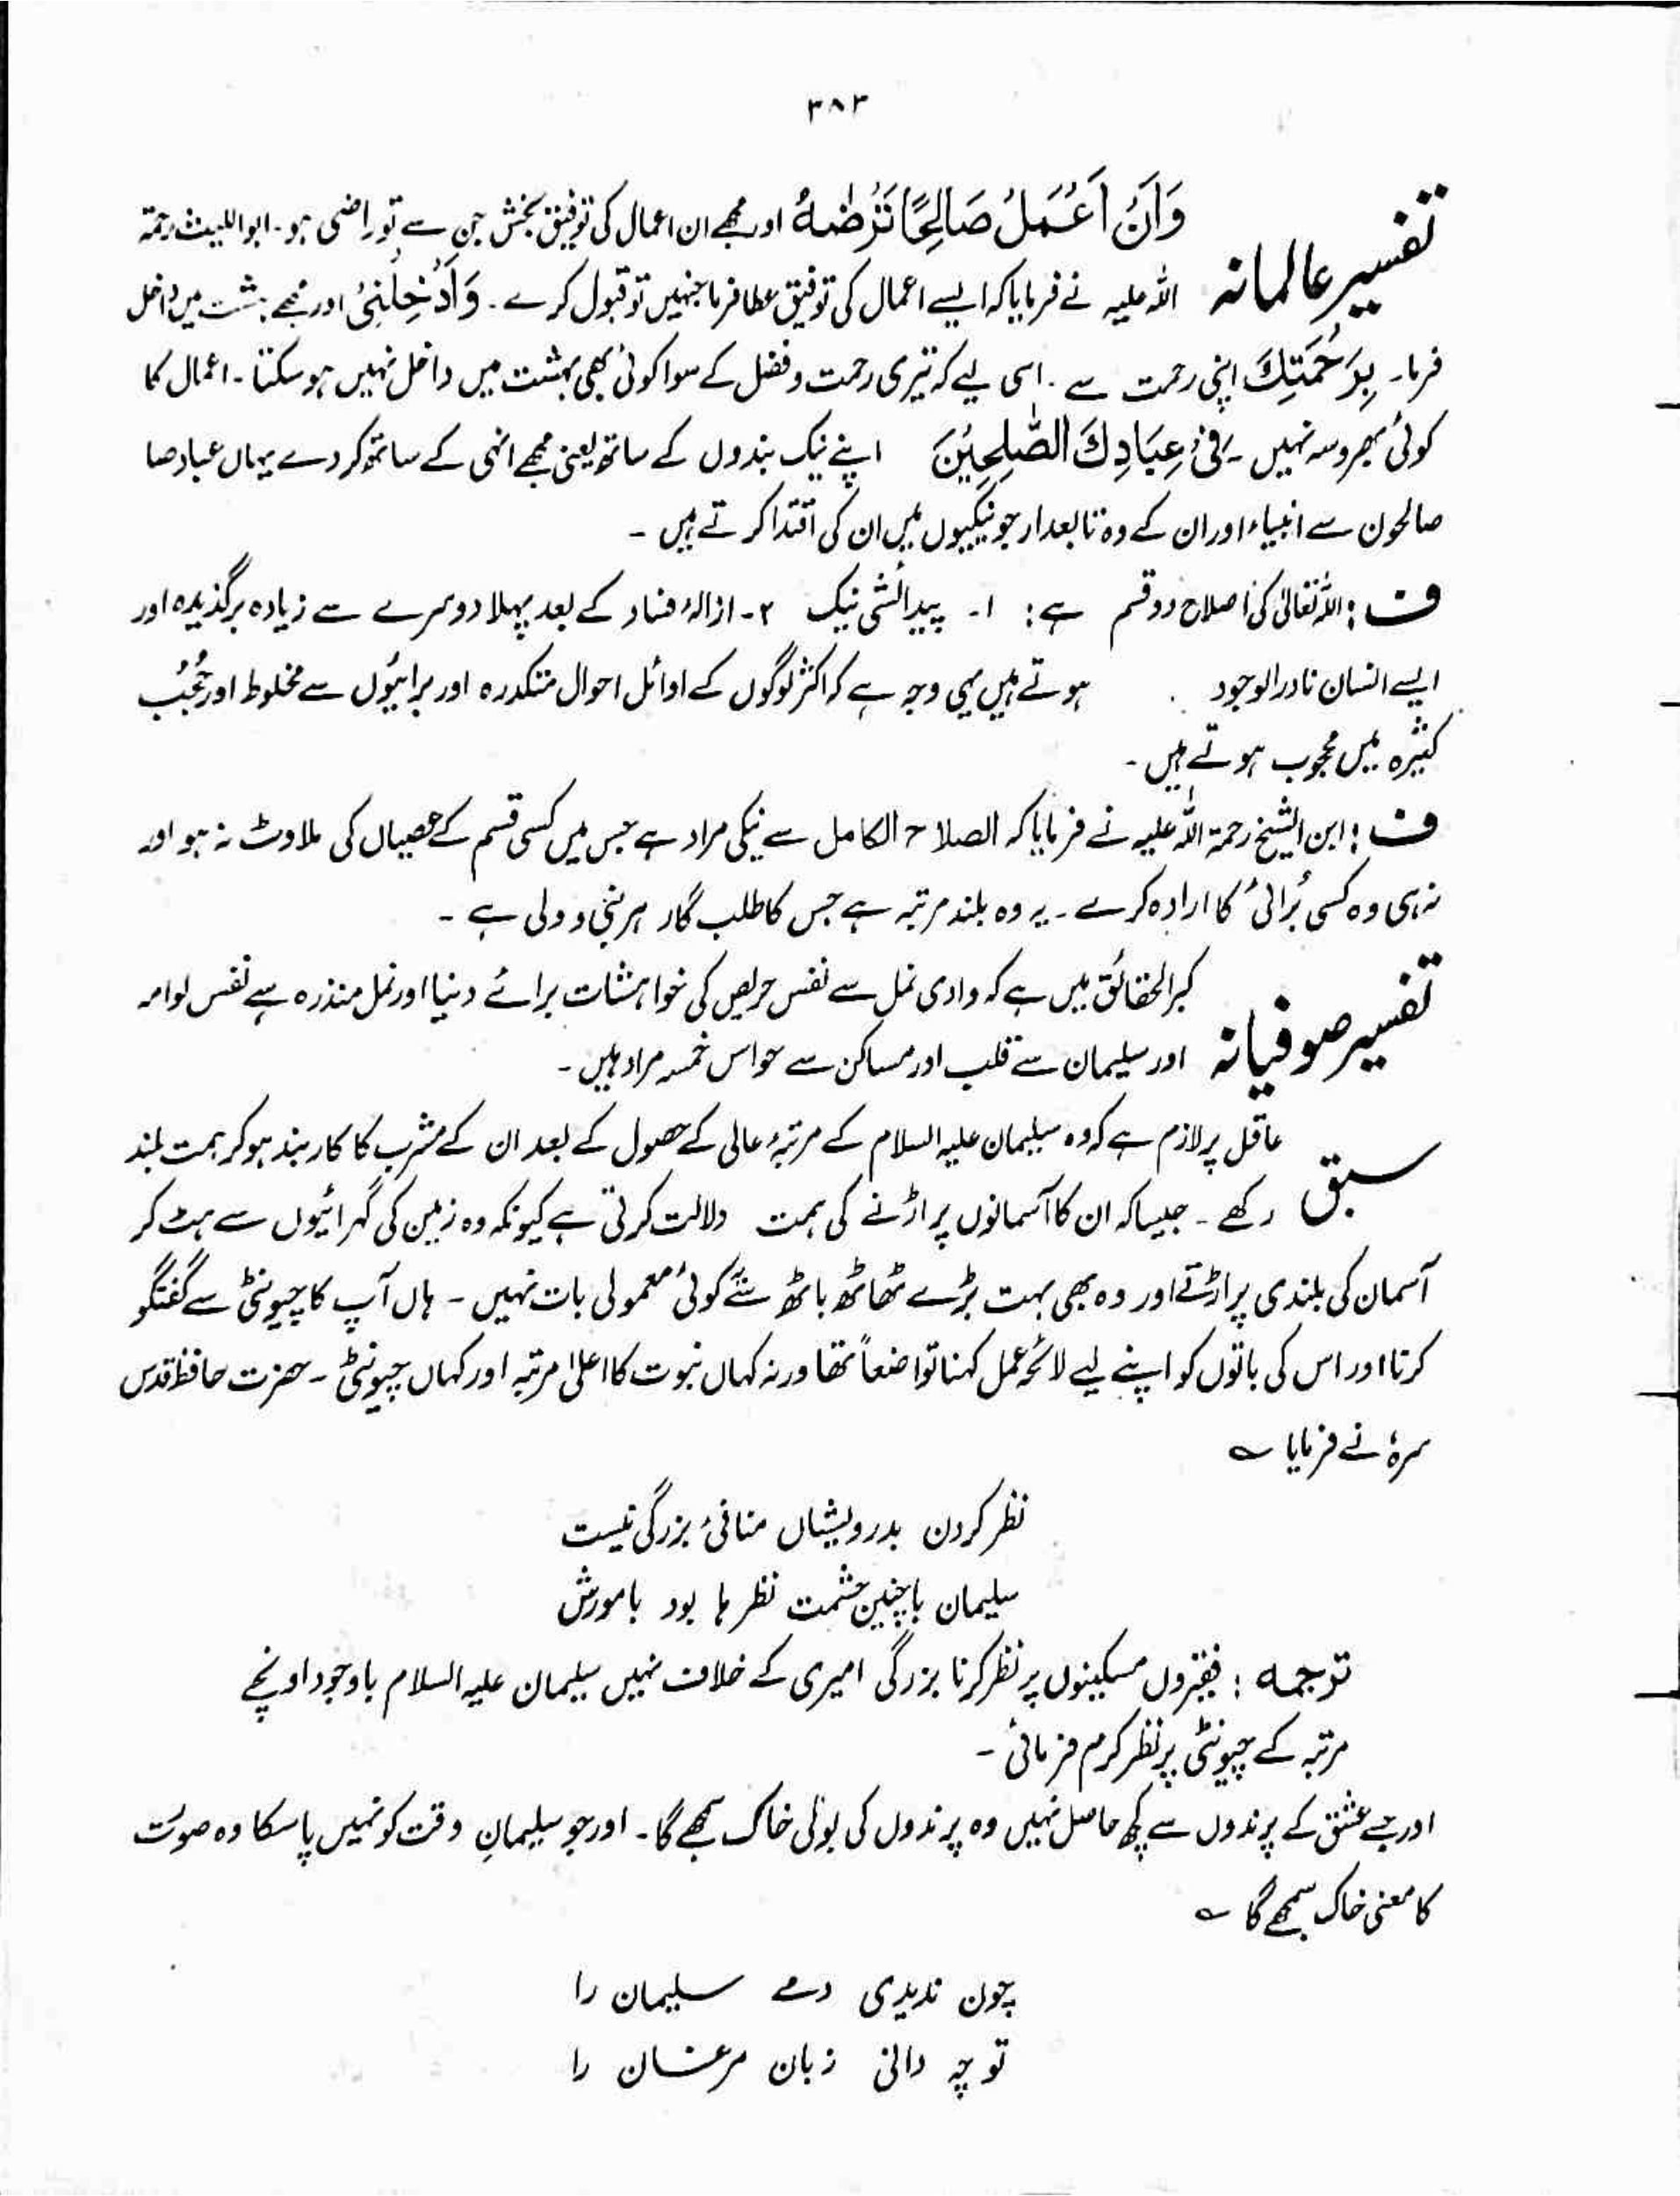 ۳۸۳
تفسیر عالمانہ
وَاَنْ اَعْمَلَ صَالِحًا تَرْضٰىهُ اور مجھے ان اعمال کی توفیق بخش جن سے تو راضی ہو۔ ابواللیث رحمۃ
اللہ علیہ نے فرمایا کہ ایسے اعمال کی توفیق عطا فرما جنہیں تو قبول کرے۔ وَاَدْخِلْنِیْ اور مجھے بہشت میں داخل
فرما۔ بِرَحْمَتِكَ اپنی رحمت سے۔ اسی لیے کہ تیری رحمت و فضل کے سوا کوئی بھی بہشت میں داخل نہیں ہو سکتا۔ اعمال کا
کوئی بھروسہ نہیں۔ فِیْ عِبَادِكَ الصّٰلِحِیْنَ اپنے نیک بندوں کے ساتھ یعنی مجھے انہی کے ساتھ کر دے یہاں عباد صا
صالحون سے انبیاء اور ان کے وہ تابعدار جو نیکیوں میں ان کی اقتدا کرتے ہیں۔
ف: اللہ تعالیٰ کی اصلاح دو قسم ہے: ۱۔ پیدائشی نیک ۲۔ ازالۂ فساد کے بعد پہلا دوسرے سے زیادہ برگذیدہ اور
ایسے انسان نادر الوجود ہوتے ہیں یہی وجہ ہے کہ اکثر لوگوں کے اوائل احوال متکدرہ اور برائیوں سے مخلوط اور حُجُب
کثیرہ میں محجوب ہوتے ہیں۔
ف: ابن الشیخ رحمۃ اللہ علیہ نے فرمایا کہ الصلاح الکامل سے نیکی مراد ہے جس میں کسی قسم کے عصیاں کی ملاوٹ نہ ہو اور
نہ ہی وہ کسی بُرائی کا ارادہ کرے۔ یہ وہ بلند مرتبہ ہے جس کا طلب گار ہر نبی و ولی ہے۔
تفسیر صوفیانہ
کبر الحقائق میں ہے کہ وادی نمل سے نفس حریص کی خواہشات برائے دنیا اور نمل منذرہ سے نفس لوامہ
اور سلیمان سے قلب اور مساکن سے حواس خمسہ مراد ہیں۔
سبق
عاقل پر لازم ہے کہ وہ سلیمان علیہ السلام کے مرتبۂ عالی کے حصول کے بعد ان کے مشرب کا کاربند ہو کر ہمت بلند
رکھے۔ جیسا کہ ان کا آسمانوں پر اڑنے کی ہمت دلالت کرتی ہے کیونکہ وہ زمین کی گہرائیوں سے ہٹ کر
آسمان کی بلندی پر اڑتے اور وہ بھی بہت بڑے ٹھاٹھ باٹھ سے یہ کوئی معمولی بات نہیں۔ ہاں آپ کا چیونٹی سے گفتگو
کرنا اور اس کی باتوں کو اپنے لیے لائحہ عمل کہنا تواضعاً تھا ورنہ کہاں نبوت کا اعلیٰ مرتبہ اور کہاں چیونٹی۔ حضرت حافظ قدس
سرہٗ نے فرمایا ؎
نظر کردن بدرویشاں منافیٔ بزرگی نیست
سلیمان باچنین حشمت نظر ہا بود با مورش
توجمہ: فقیروں مسکینوں پر نظر کرنا بزرگی امیری کے خلاف نہیں سلیمان علیہ السلام باوجود اونچے
مرتبہ کے چیونٹی پر نظر کرم فرمائی۔
اور جسے عشق کے پرندوں سے کچھ حاصل نہیں وہ پرندوں کی بولی خاک سمجھے گا۔ اور جو سلیمانِ وقت کو نہیں پا سکا وہ صوت
کا معنی خاک سمجھے گا ؎
چون ندیدی دمے سلیمان را
تو چہ دانی زبان مرغان را